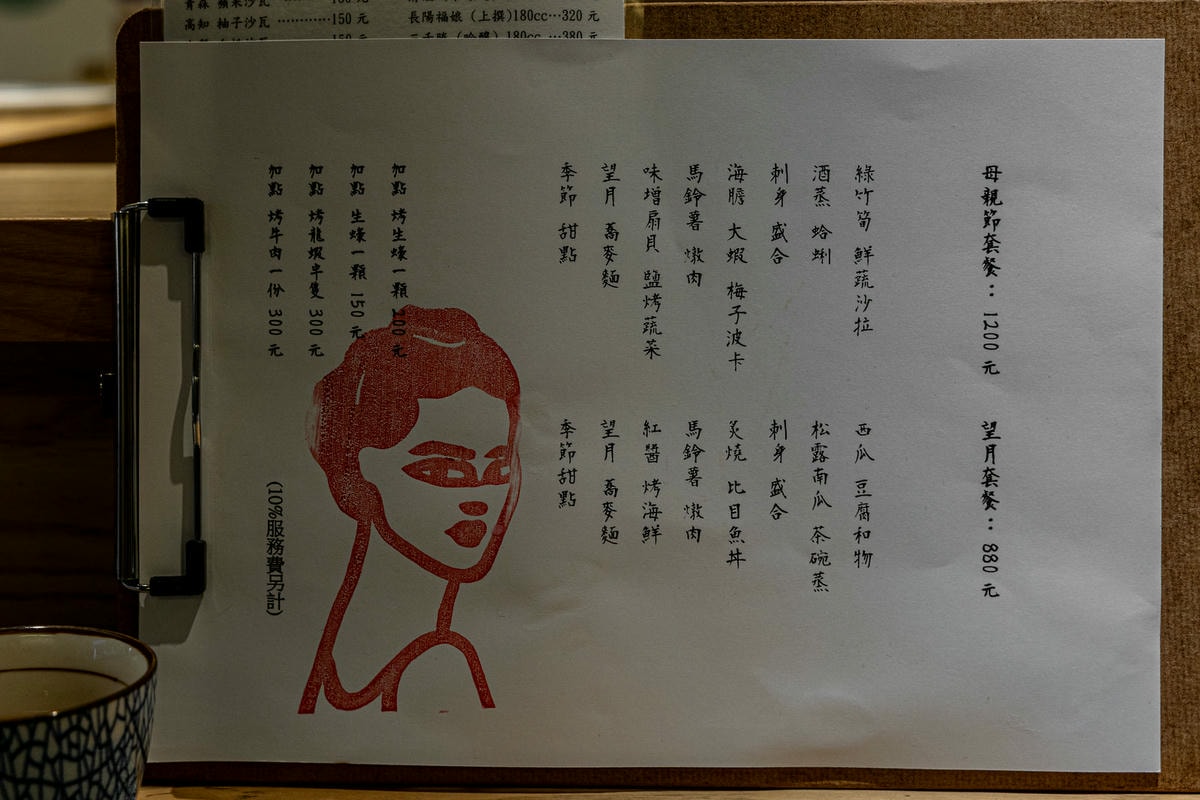 高知 柚子沙瓦 …………150 元
長陽福娘（上撰）180cc…320 元
三千勝（吟釀）180cc …380 元
母親節套餐：1200 元
綠竹筍 鮮蔬沙拉
酒蒸 蛤蜊
刺身 盛合
海膽 大蝦 梅子波卡
馬鈴薯 燉肉
味增扇貝 鹽烤蔬菜
望月 蕎麥麵
季節 甜點
望月套餐：880 元
西瓜 豆腐和物
松露南瓜 茶碗蒸
刺身 盛合
炙燒 比目魚丼
馬鈴薯 燉肉
紅醬 烤海鮮
望月 蕎麥麵
季節甜點
加點 烤生蠔一顆 200 元
加點 生蠔一顆 150 元
加點 烤龍蝦半隻 300 元
加點 烤牛肉一份 300 元
(10%服務費另計)